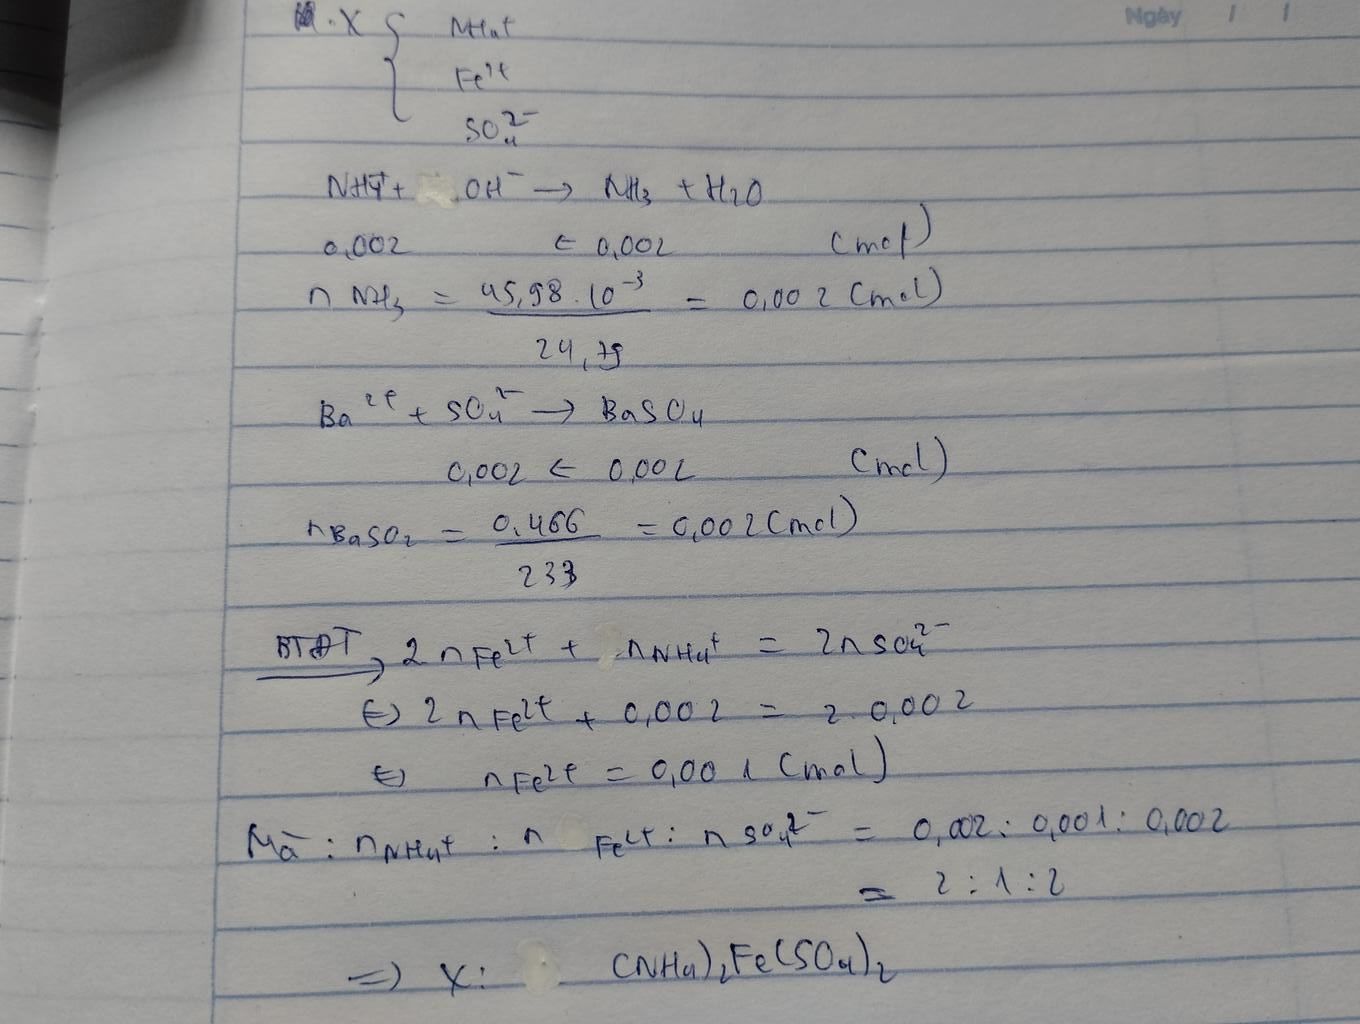 Ngày / /
. X { NH₄⁺
Fe²⁺
SO₄²⁻
NH₄⁺ + OH⁻ → NH₃ + H₂O
0,002 ← 0,002 (mol)
n NH₃ = 45,98.10⁻³ / 24,79 = 0,002 (mol)
Ba²⁺ + SO₄²⁻ → BaSO₄
0,002 ← 0,002 (mol)
n BaSO₂ = 0,466 / 233 = 0,002 (mol)
BTĐT → 2 n Fe²⁺ + n NH₄⁺ = 2n SO₄²⁻
⇔ 2 n Fe²⁺ + 0,002 = 2.0,002
⇔ n Fe²⁺ = 0,001 (mol)
Mà : n NH₄⁺ : n Fe²⁺ : n SO₄²⁻ = 0,002 : 0,001 : 0,002
= 2 : 1 : 2
⇒ X : (NH₄)₂Fe(SO₄)₂